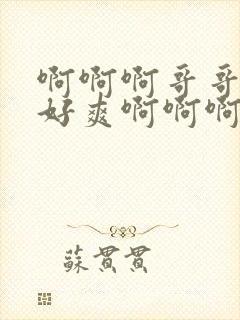 啊啊啊哥哥
好爽啊啊啊
蘇貫貫